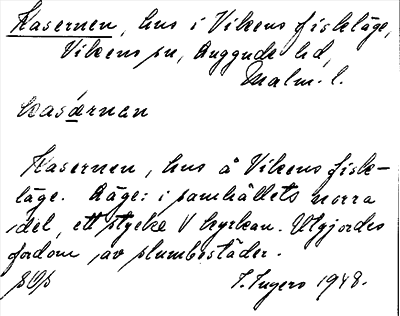 Kasernen, hus i Vikens fiskläge,
Vikens sn, Luggude hd,
Malm. l.
kasǽrnan
Kasernen, hus å Vikens fisk-
läge. Läge: i samhällets norra
del, ett stycke V kyrkan. Utgjordes
fordom av slumbostäder.
1948.